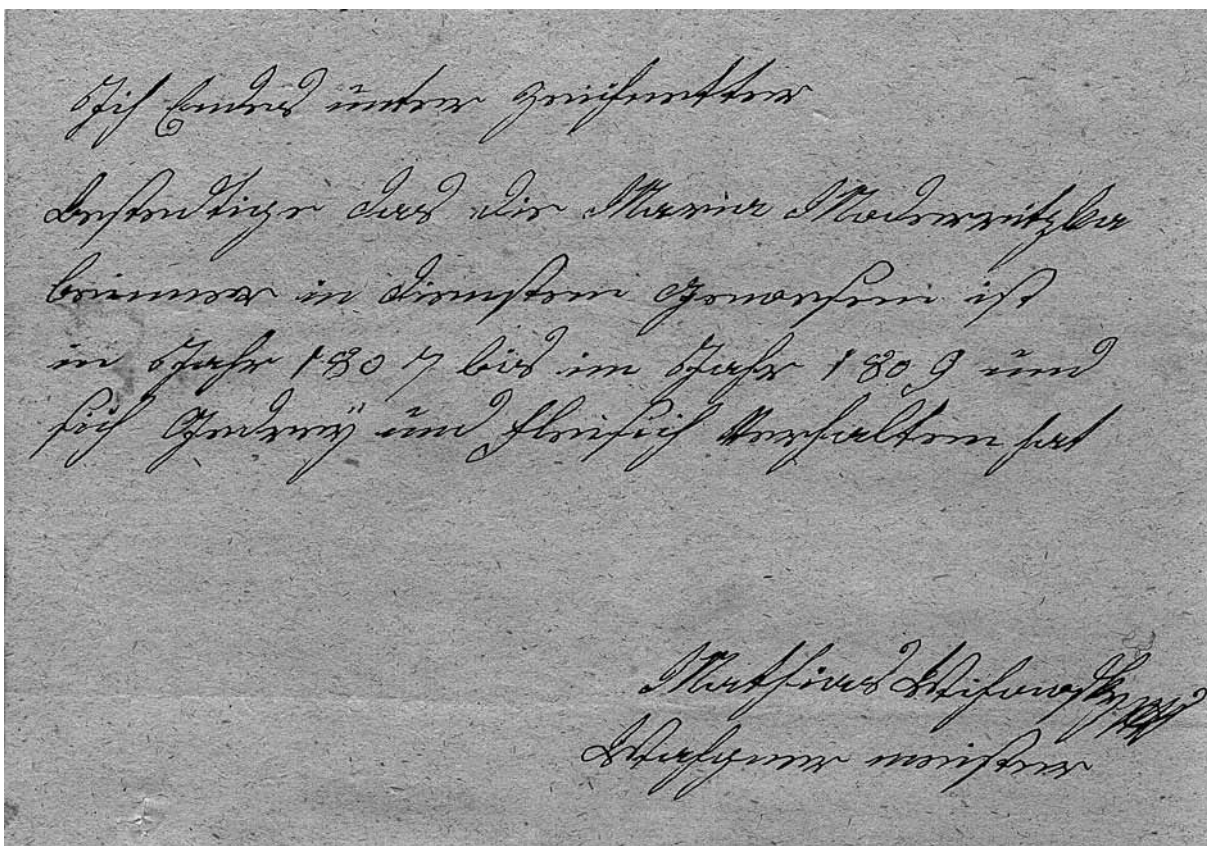 Ich Endes unter zeichnetter
Bestedtige das die Maria Moderritzka
bei immer in diensten gewesen ist
in Jahr 1807 bis im Jahr 1809 und
sich Gedrey und fleisich Verhalten hat
Mathias
Wahgner meister